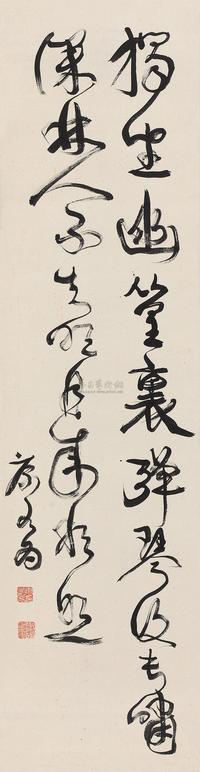 獨坐幽篁裏彈琴復長嘯
深林人不知明月來相照
康有為